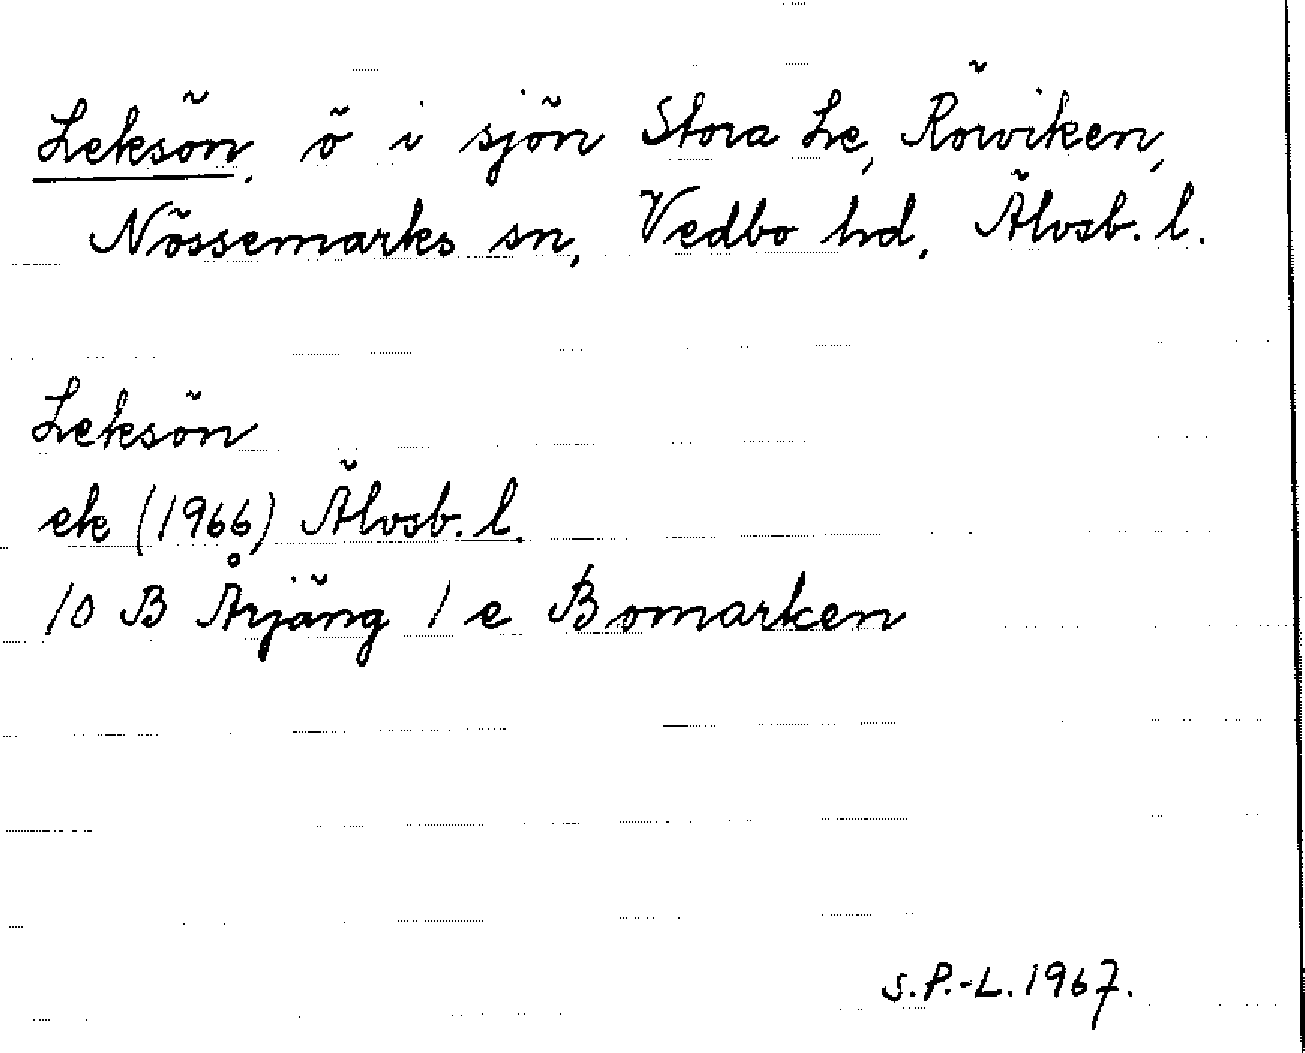 Leksön, ö i sjön Stora Le, Rörviken,
Nössemarks sn, Vedbo hd, Älvsb. l.
Leksön
ek (1966) Älvsb. l.
10 B Årjäng 1 e Bomarken
S.P.-L. 1967.